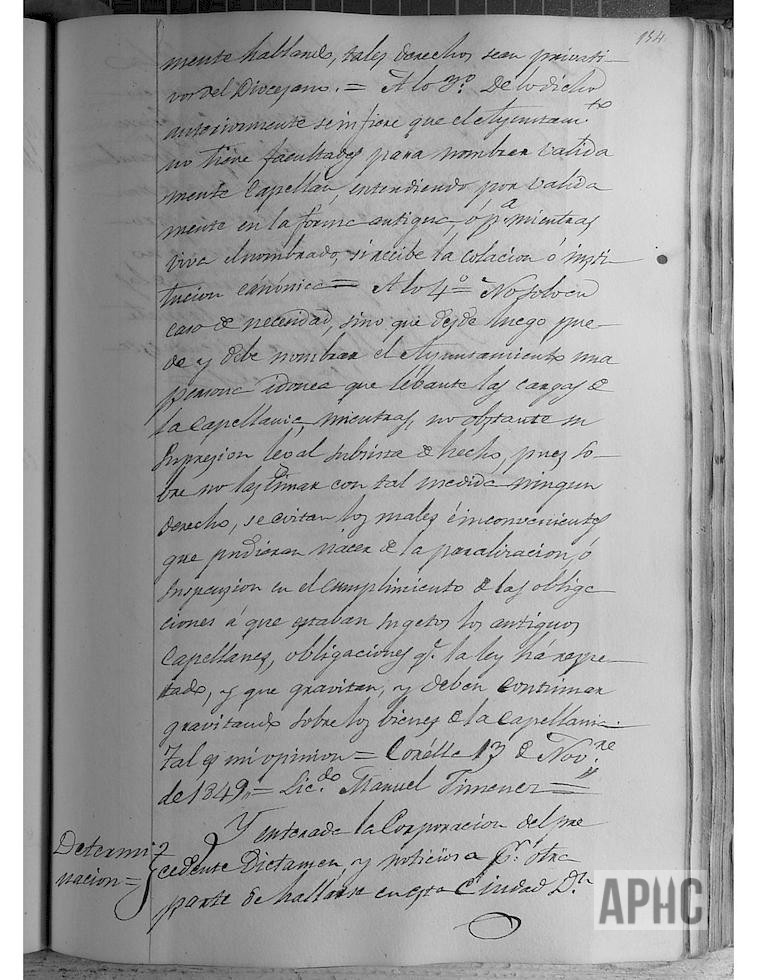 154
mente hallarse, tales derechos sean privati-
vos del Diocesano. = A lo 3º. De lo dicho
anteriormente se infiere que el Ayuntam.to
no tiene facultades para nombrar valida
mente Capellan, entendiendo por valida
mente en la forma antigua, ó p.a mientras
viva el nombrado, si recibe la colacion ó insti-
tucion canónica = A lo 4º = No solo en
caso de necesidad, sino que desde luego pue-
de y debe nombrar el Ayuntamiento una
persona idonea que lebante las cargas de
la Capellania, mientras, no obstante su
Supresion legal subsista de hecho, pues so-
bre no lastimar con tal medida ningun
derecho, se evitan los males é inconvenientes
que pudieran nacer de la paralizacion, ó
suspension en el cumplimiento de las obliga
ciones á que estaban sugetos los antiguos
Capellanes, obligaciones q.e la ley há respe-
tado, y que gravitan, y deben continuar
gravitando sobre los bienes de la Capellania.
Tal es mi opinion = Corella 13 de Nov.re
de 1849 = Lic.do Manuel Timener =
Y enterada la Corporacion del pre
Determi
nacion =
cedente Dictamen y noticiosa p.r otra
parte de hallarse en esta Ciudad D.n
APHC